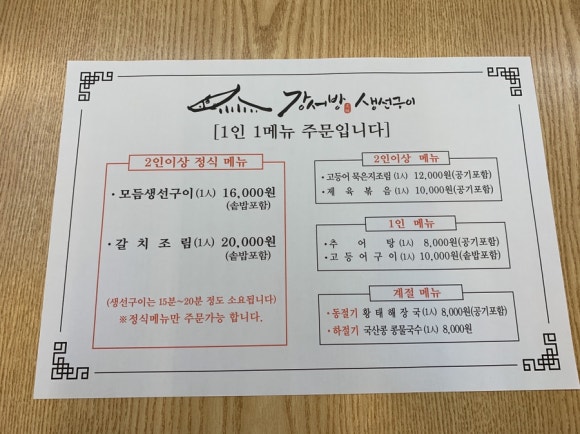 강서방 생선구이
[1인 1메뉴 주문입니다]
2인이상 정식 메뉴
· 모듬생선구이(1人) 16,000원
(솥밥포함)
· 갈 치 조 림(1人) 20,000원
(솥밥포함)
(생선구이는 15분~20분 정도 소요됩니다)
※정식메뉴만 주문가능 합니다.
2인이상 메뉴
· 고등어 묵은지조림(1人) 12,000원(공기포함)
· 제 육 볶 음(1人) 10,000원(공기포함)
1인 메뉴
· 추 어 탕(1人) 8,000원(공기포함)
· 고 등 어 구 이(1人) 10,000원(솥밥포함)
계절 메뉴
· 동절기 황 태 해 장 국(1人) 8,000원(공기포함)
· 하절기 국산콩 콩물국수(1人) 8,000원